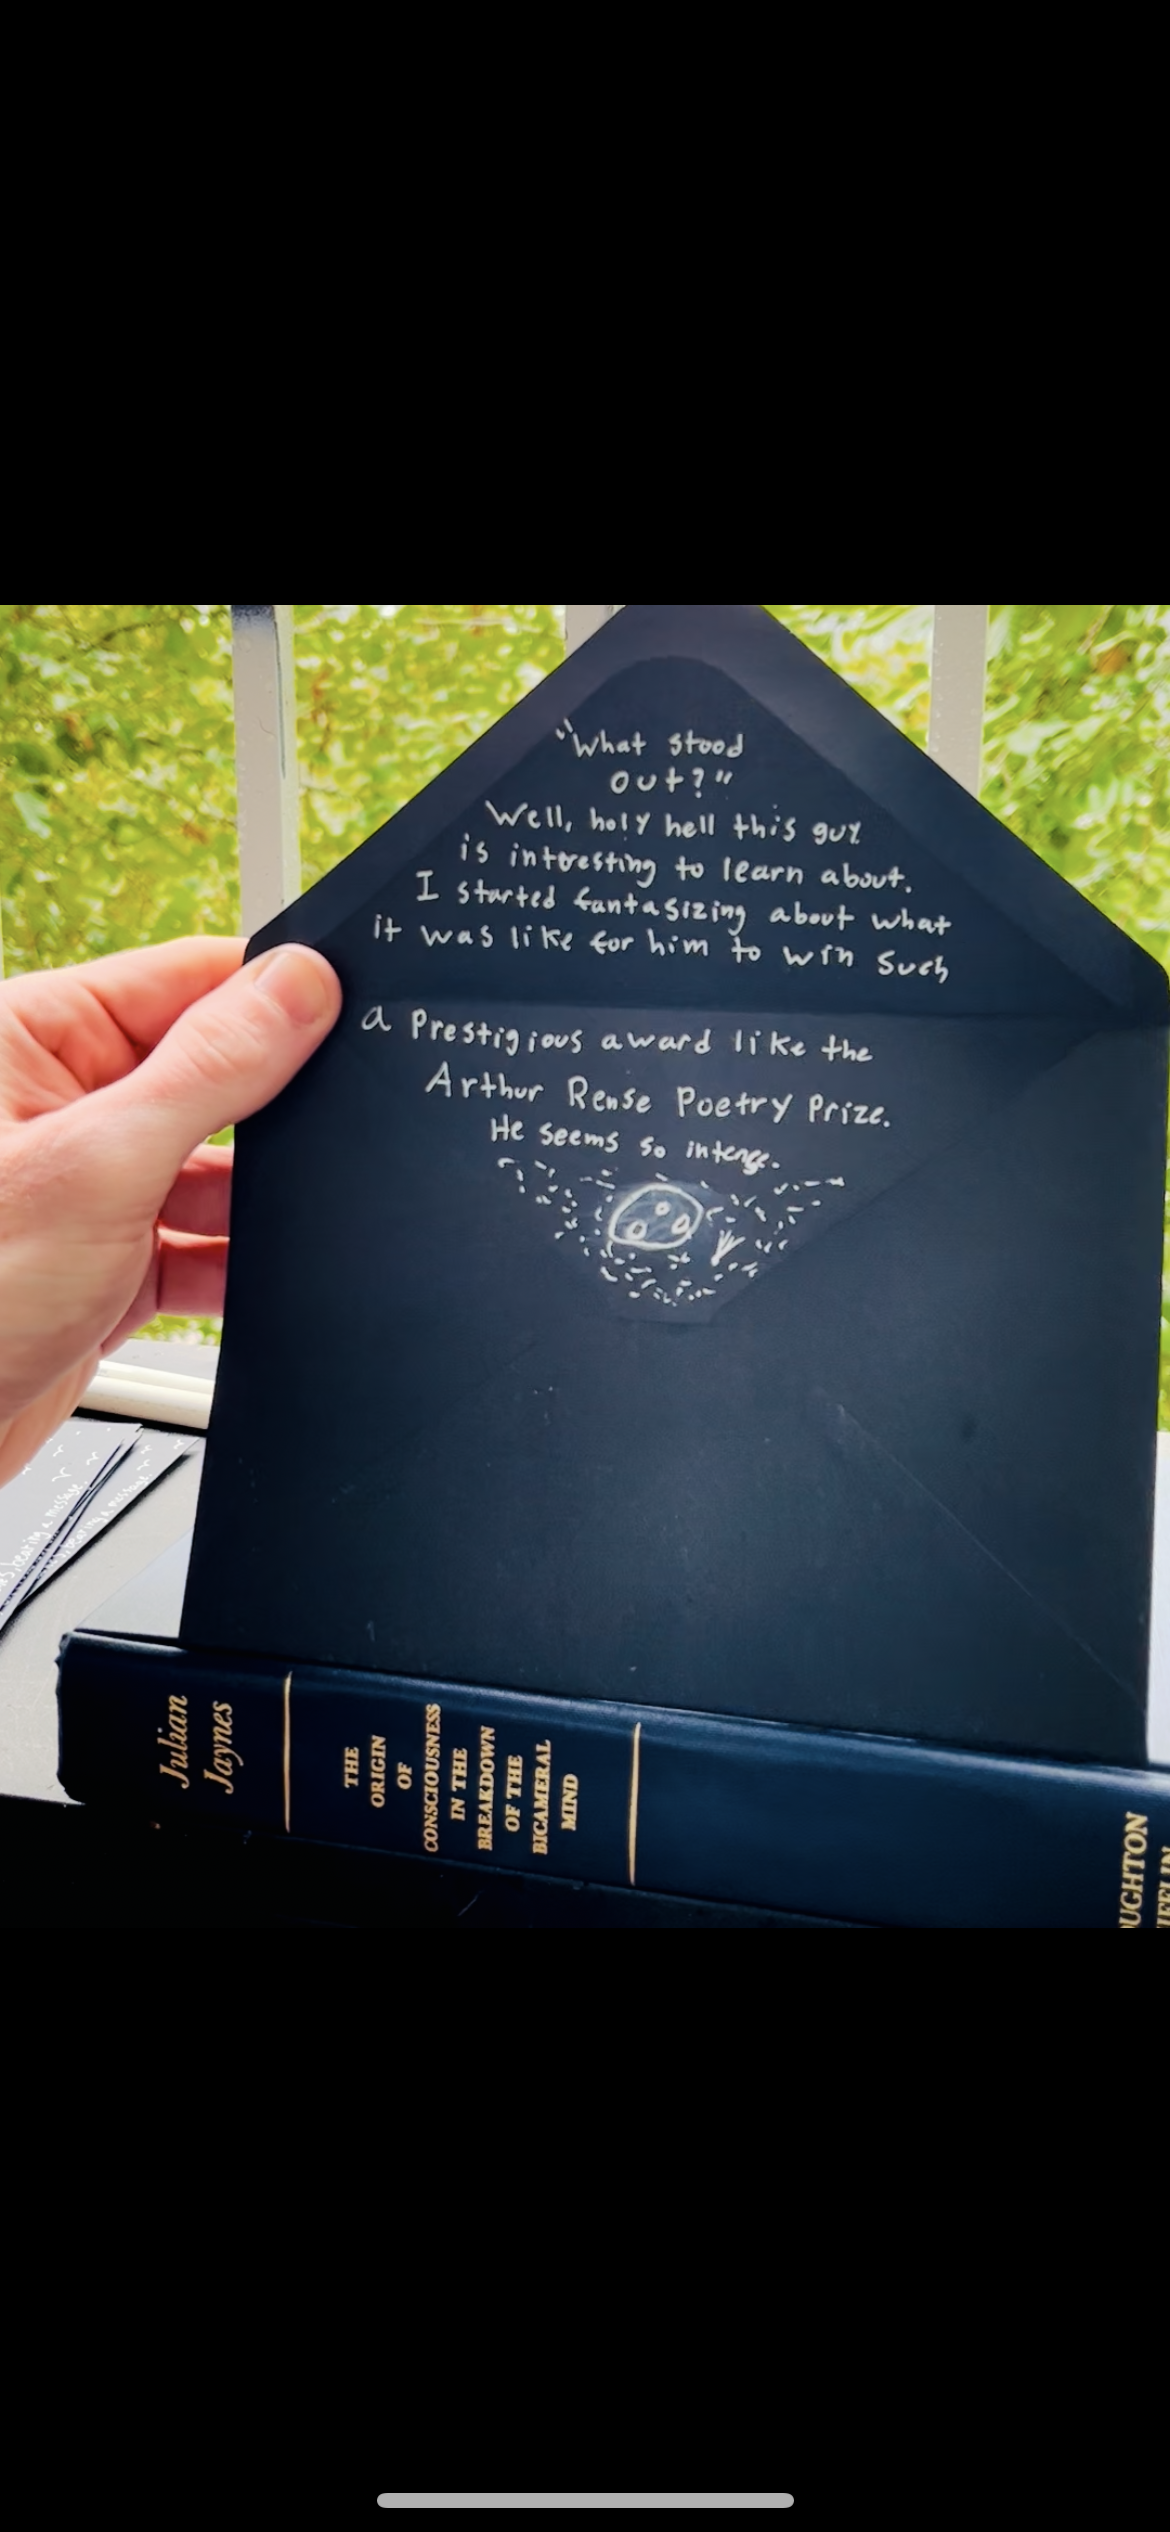 "What stood
out?"
Well, holy hell this guy
is interesting to learn about.
I started fantasizing about what
it was like for him to win such
a Prestigious award like the
Arthur Rense Poetry Prize.
He seems so intense.
bearing a message
bearing a message
Julian
Jaynes
THE
ORIGIN
OF
CONSCIOUSNESS
IN THE
BREAKDOWN
OF THE
BICAMERAL
MIND
OUGHTON
IFFLIN